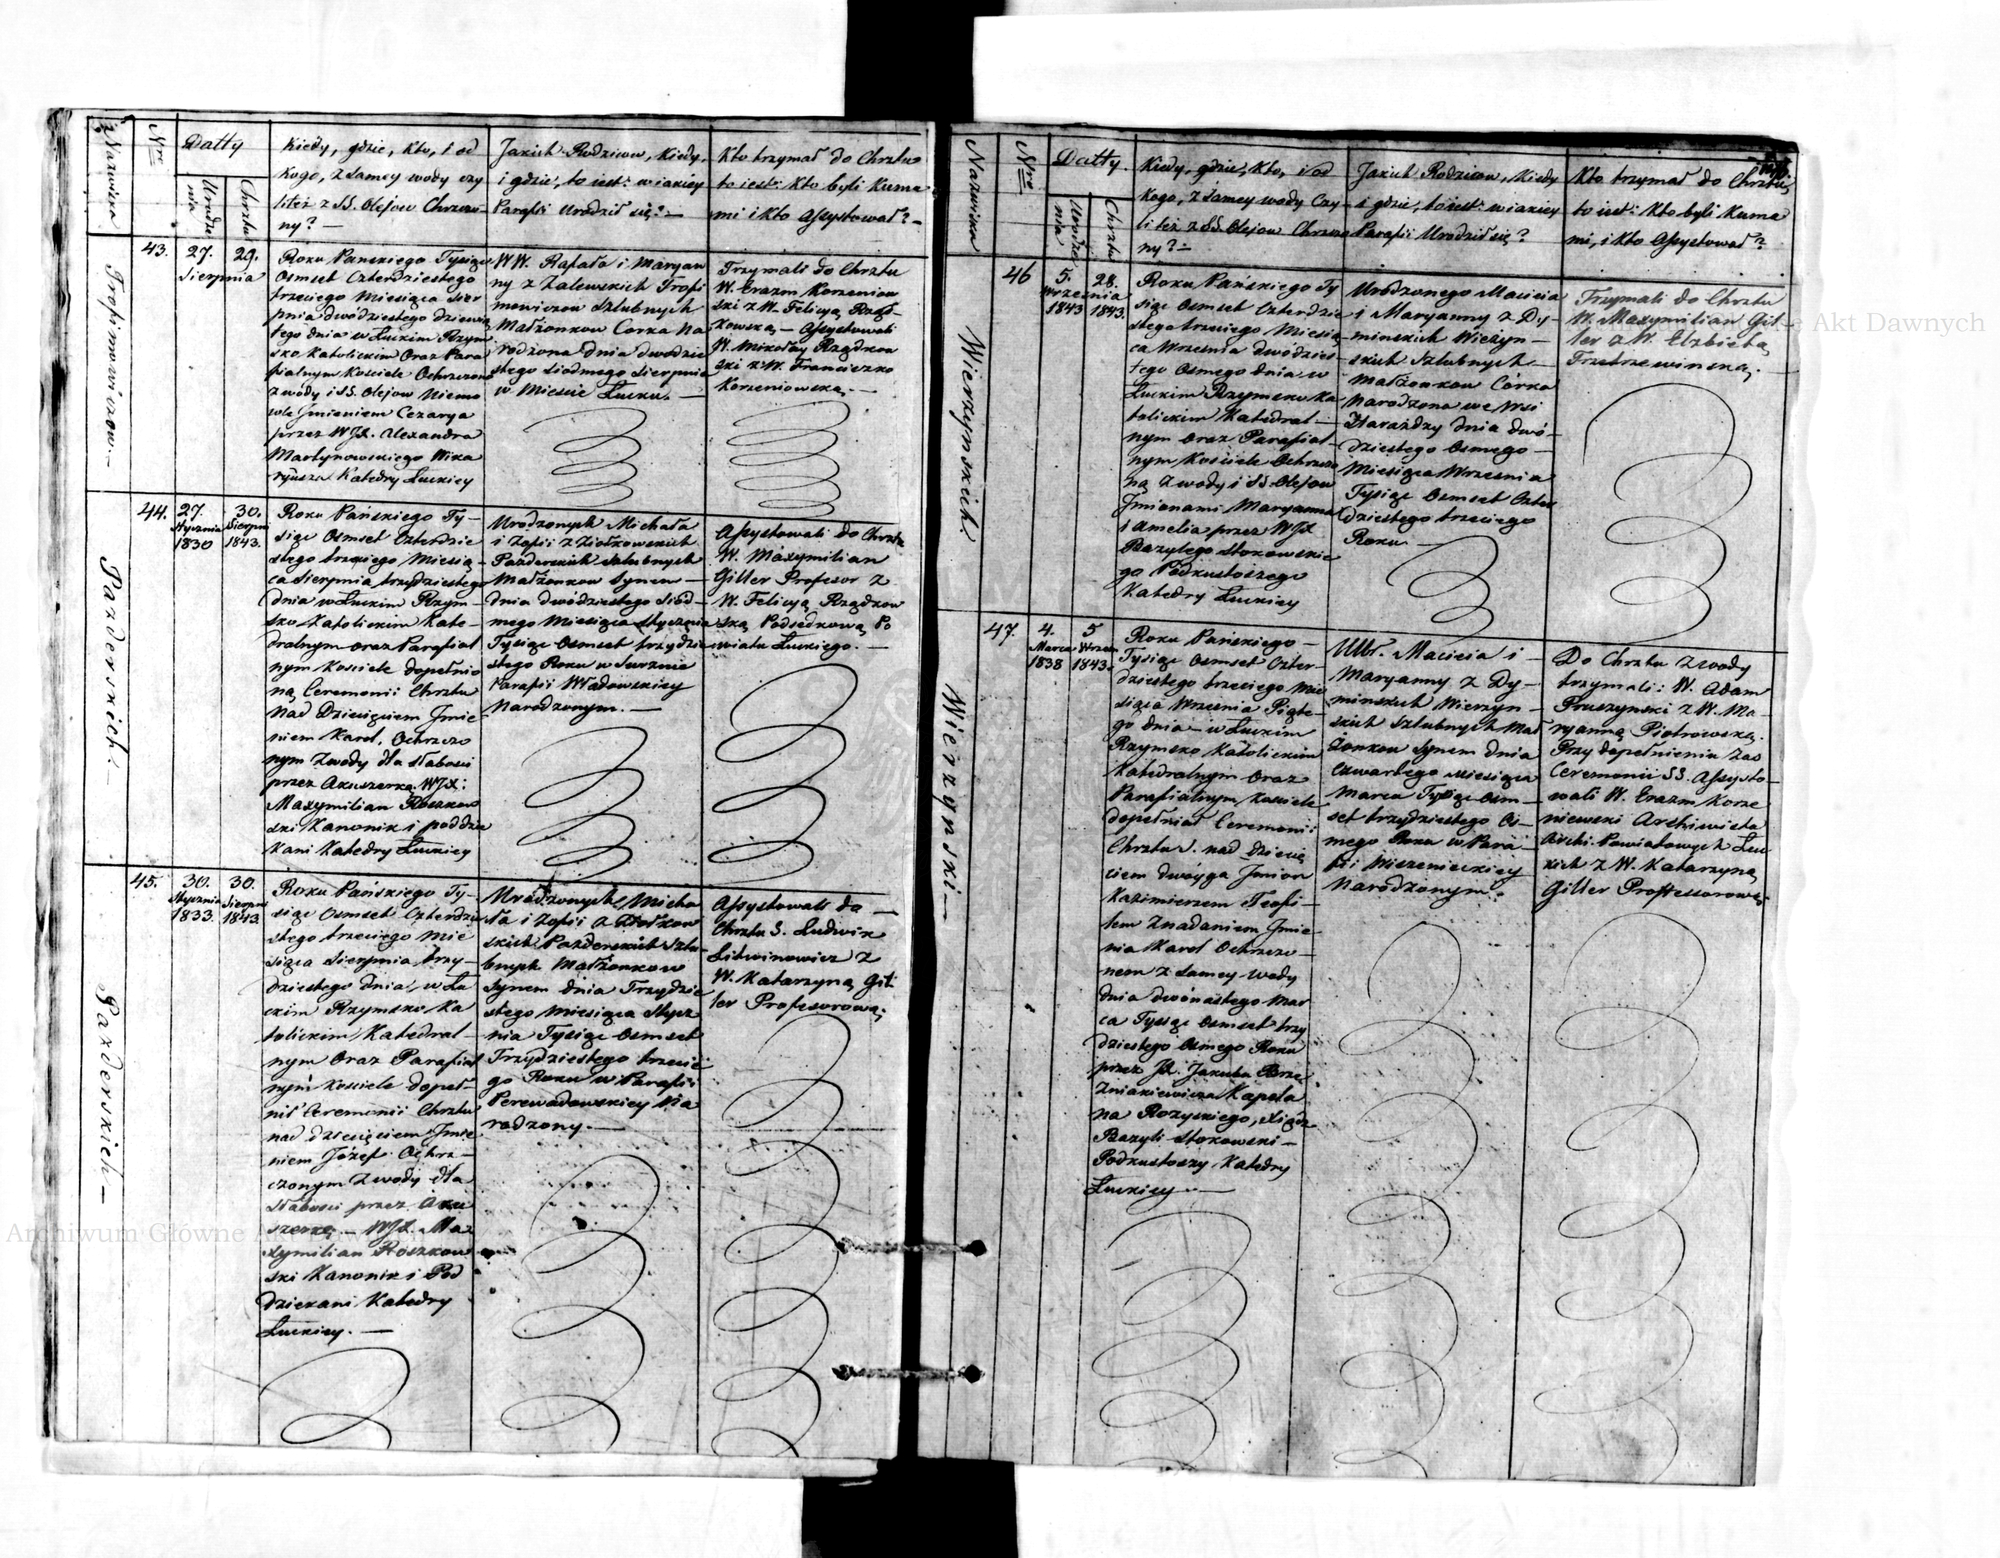 Nazwiska
Nre
Datty
Urodze
nia
Chrztu
Kiedy, gdzie, kto, i od
kogo, z samey wody czy
li też z SS. Olejow Chrzczo
ny? —
Jakich Rodzicow, kiedy,
i gdzie, to iest: w iakiey
Parafii Urodził się? —
Kto trzymał do Chrztu
to iest: kto byli Kuma
mi i kto Assystował? —
Trofimowiczow. —
43.
27.
29.
Sierpnia
Roku Pańskiego Tysiąc
Osmset Czterdziestego
trzeciego Miesiąca Sier
pnia dwódziestego dziewią
tego dnia w Łuckim Rzym
sko Katolickim Oraz Para
fialnym Kościele Ochrzczono
z wody i SS. Olejow Niemo
wle Jmieniem Cezarya
przez WJX. Alexandra
Martynowskiego Wika
ryusza Katedry Łuckiey
WW. Rafała i Maryan
ny z Zalewskich Trofi
mowiczow Szlubnych
Małżonkow Corka Na
rodzona dnia dwodzie
stego siodmego Sierpnia
w Miescie Łucku. —
Trzymali do Chrztu
W. Erazm Korzeniow
ski z W. Felicyą Rząd-
kowską — Assystowali
W. Mikołay Rządkow
ski z W. Franciszką
Korzeniowską. —
Pazderskich. —
44.
27.
Stycznia
1830
30.
Sierpni
1843.
Roku Pańskiego Ty-
siąc Osmset Czterdzie
stego trzeciego Miesią-
ca Sierpnia trzydziestego
dnia w Łuckim Rzym-
sko Katolickim Kate-
dralnym oraz Parafial
nym Kościele dopełnio
ną Ceremonii Chrztu
Nad Dziecięciem Jmie
niem Karol, Ochrzczo
nym z wody dla słabości
przez Akuszerkę, WJX:
Maxymilian Roszkow
ski Kanonik i poddzie
kani Katedry Łuckiey
Urodzonych Michała
i Zofii z Ziołkowskich
Pazderskich szlubnych
Małżonkow Synem —
dnia dwódziestego siód-
mego Miesiąca Stycznia
Tysiąc Osmset trzydzie
stego Roku w
Parafii
Narodzonym. —
Assystowali do Chrztu
W. Maxymilian
Giller Profesor z
W. Felicyą Rządkow
ską Podsędkową Po
wiatu Łuckiego. —
Pazderskich —
45.
30.
Stycznia
1833.
30.
Sierpni
1843.
Roku Pańskiego Ty-
siąc Osmset Czterdzie
stego trzeciego Mie
siąca Sierpnia trzy-
dziestego dnia, w Łu
ckim Rzymsko Ka
tolickim Katedral-
nym Oraz Parafial
nym Kościele dopeł-
nił Ceremonii Chrztu
nad dziecięciem Jmie
niem Józef Ochrz-
czonym z wody dla
słabości przez Aku
szerkę — WJX. Ma
xymilian Roszkow
ski Kanonik i Pod
dziekani Katedry
Łuckiey. —
Urodzonych Micha
ła i Zofii z Ziołkow
skich Pazderskich Szlu-
bnych Małżonkow
Synem dnia Trzydzie
stego Miesiąca Stycz
nia Tysiąc Osmset
Trzydziestego trzecie
go Roku w Parafii
Perewadowskiey Na
rodzony. —
Assystowali do —
Chrztu S. Ludwik
Litwinowicz z
W. Katarzyną Gil
ler Profesorową.
Nazwiska
Nre
Datty.
Urodze
nia
Chrztu
Kiedy, gdzie, kto, i od
kogo, z samey wody czy
li też z SS. Olejow Chrzczo
ny? —
Jakich Rodzicow, kiedy
i gdzie, to iest: w iakiey
Parafii Urodził się?
Kto trzymał do Chrztu,
to iest: kto byli Kuma
mi, i kto Assystował?
Wierzynskich.
46
5.
Września
1843
28.
1843.
Roku Pańskiego Ty
siąc Osmset Czterdzie
stego trzeciego Miesią
ca Września dwódzies-
tego Osmego dnia w
Łuckim Rzymsko Ka
tolickim Katedral-
nym oraz Parafial-
nym Kościele Ochrzczo
ną z wody i SS Olejow
Jmionami Maryanna
i Amelia przez WJX
Bazylego Stokowskie
go Podkustoszego
Katedry Łuckiey
Urodzonego Macieia
i Maryanny z Dy-
minskich Wierzyn-
skich Szlubnych —
Małżonkow Córka
Narodzona we Wsi
Harażdży dnia dwó-
dziestego Osmego —
Miesiąca Września
Tysiąc Osmset Czter
dziestego trzeciego
Roku —
Trzymali do Chrztu
W. Maxymilian Gil-
ler z W. Elzbietą
Trzetrzewinską. —
Wierzynski —
47.
4.
Marca
1838
5
Wrześn
1843.
Roku Pańskiego —
Tysiąc Osmset Czter-
dziestego trzeciego Mie
siąca Września Piąte-
go dnia w Łuckim
Rzymsko Katolickim
Katedralnym Oraz
Parafialnym Kościele
dopełniał Ceremonii
Chrztu S. nad dziecię
ciem dwóyga Jmion
Kazimierzem Teofi-
lem z nadaniem Jmie-
nia Karol Ochrzczo-
nem z samey wody
dnia dwónastego Mar
ca Tysiąc Osmset trzy
dziestego Osmego Roku
przez JX. Jakuba Brze
zniakiewicza Kapela
na Rozyskiego, Xiądz
Bazyli Stokowski —
Podkustoszy Katedry
Łuckiey. —
Uur. Macieia i —
Maryanny z Dy-
minskich Wierzyn-
skich Szlubnych Mał
żonkow Synem dnia
czwartego Miesiąca
Marca Tysiąc Osm-
set trzydziestego Os-
mego Roku w Para
fii
Narodzonym.
Do Chrztu z wody
trzymali: W. Adam
Pruszynski z W. Ma-
ryanną Piotrowską.
Przy dopełnieniu zaś
Ceremonii SS. Assysto-
wali W. Erazm Korze
niewski Archiwista
Archi. Powiatowych Łuc
kich z W. Katarzyną
Giller Professorową.
Archiwum Główne Akt Dawnych
Archiwum Główne Akt Dawnych